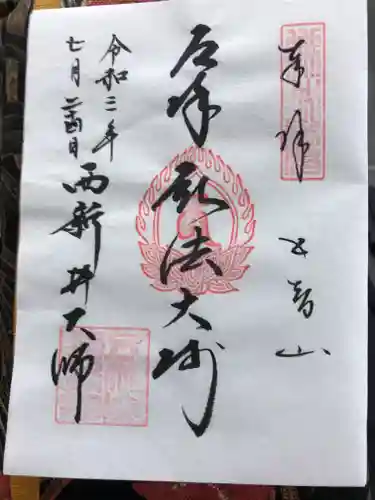 奉拝 五智山
厄除 弘法大師
令和三年
七月廿四日
西新井大師